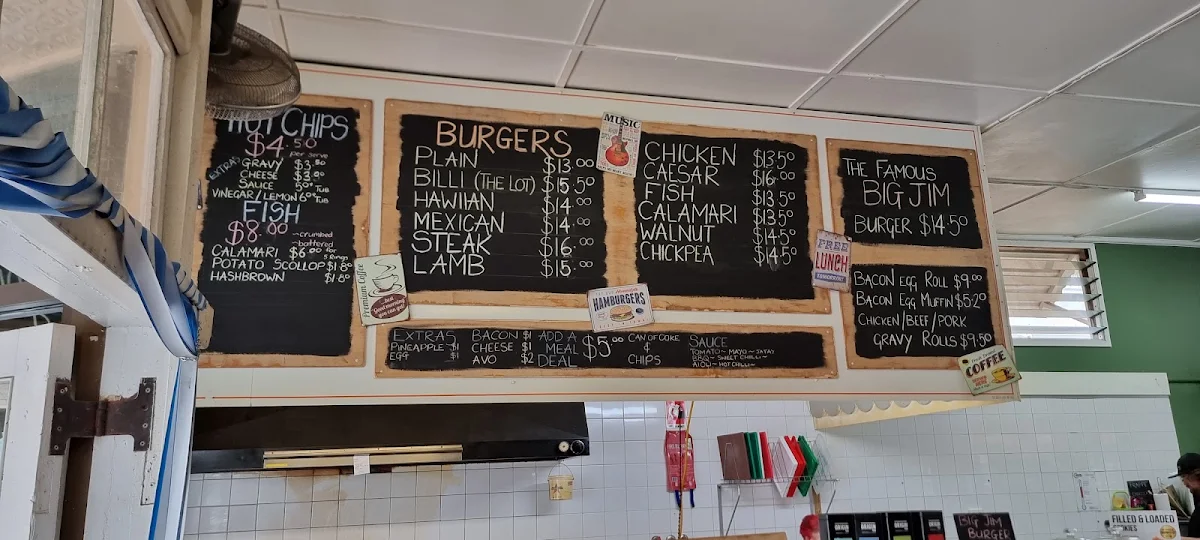 HOT CHIPS
$4.50
per serve
EXTRAS
GRAVY $3.50
CHEESE $3
SAUCE 50¢ Tub
VINEGAR/LEMON 60¢ Tub
FISH
$8.00 ~crumbed
~battered
CALAMARI $6.00 for 5 Rings
POTATO SCOLLOP $1.80
HASHBROWN $1.80
BURGERS
PLAIN $13.00
BILLI (THE LOT) $15.50
HAWIIAN $14.00
MEXICAN $14.00
STEAK $16.00
LAMB $15.00
MUSIC
CHICKEN $13.50
CAESAR $16.00
FISH $13.50
CALAMARI $13.50
WALNUT $14.50
CHICKPEA $14.50
THE FAMOUS
BIG JIM
BURGER $14.50
FREE
LUNCH
TOMORROW
BACON EGG ROLL $9.00
BACON EGG MUFFIN $5.20
CHICKEN/BEEF/PORK
GRAVY ROLLS $9.50
Premium Coffee
Good morning
you can go!
HAMBURGERS
EXTRAS BACON $1 ADD A MEAL DEAL $5.00 CAN OF COKE & CHIPS
PINEAPPLE $1 CHEESE $1
EGG $1 AVO $2
SAUCE
TOMATO~ MAYO~ SATAY
BBQ~ SWEET CHILLI~
AIOLI~ HOT CHILLI~
COFFEE
BIG JIM
BURGER
FILLED & LOADED
COOKIES